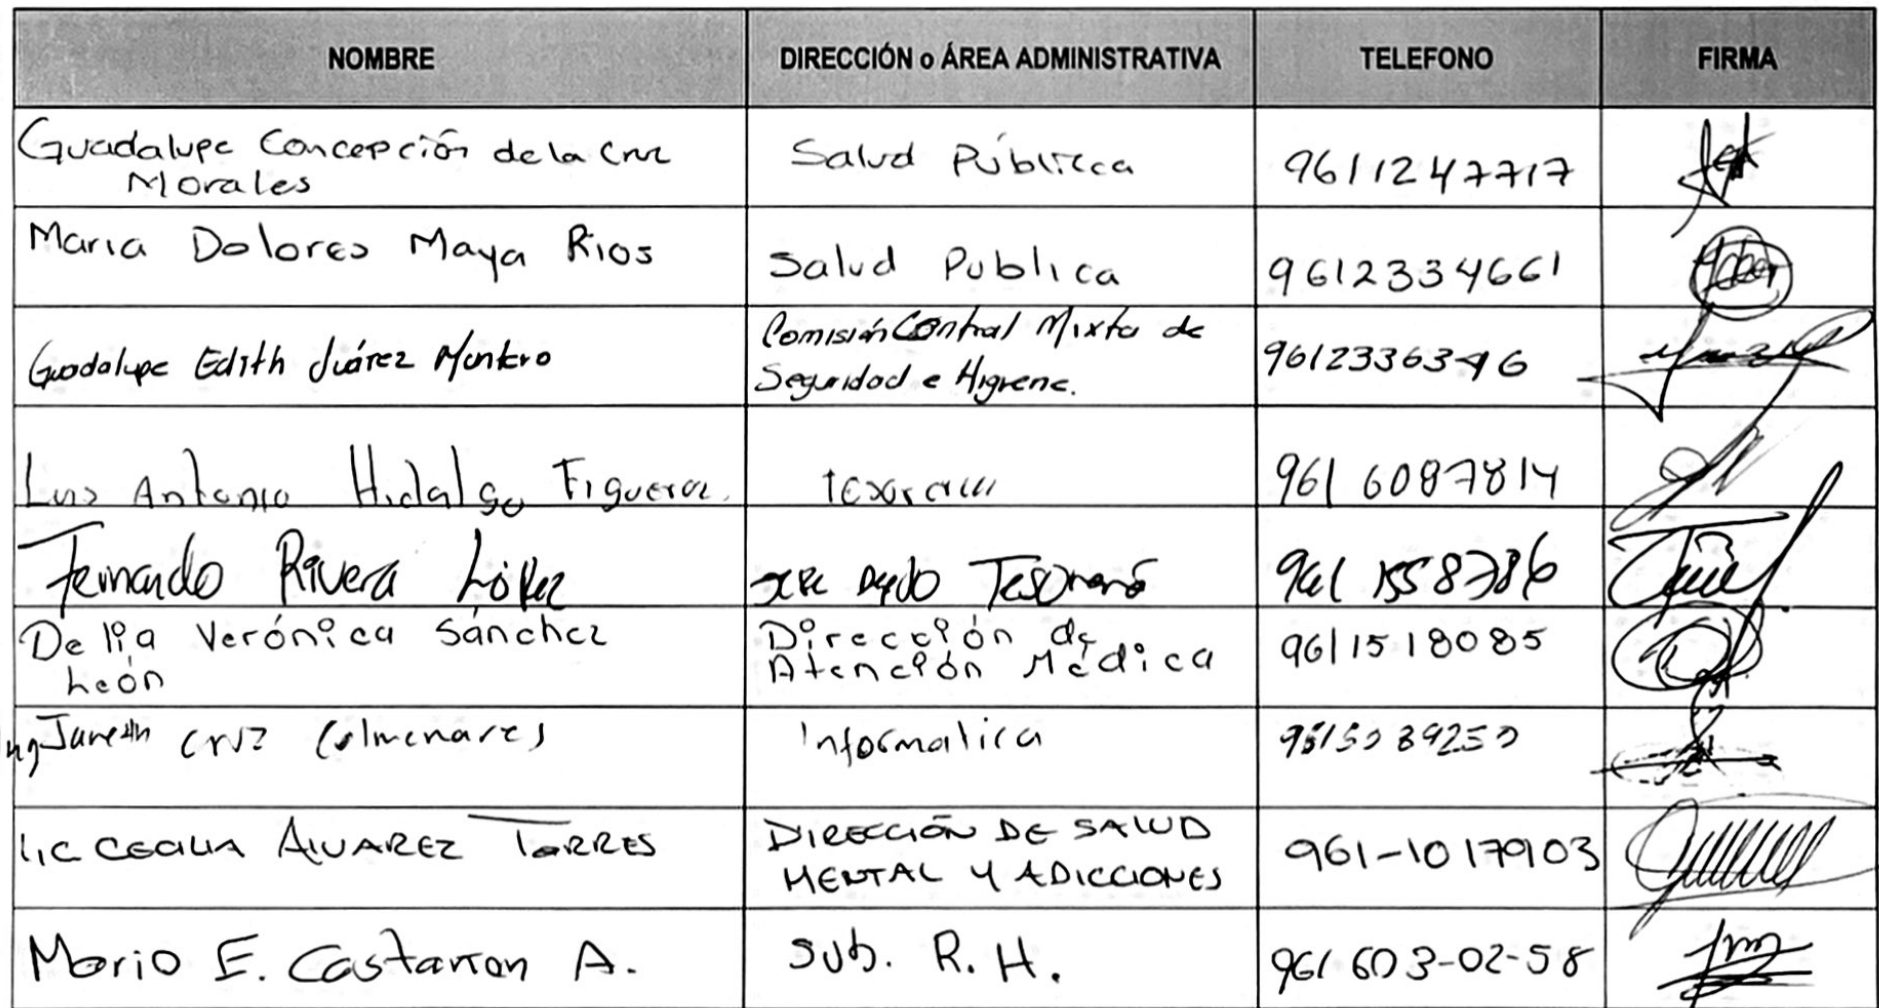 NOMBRE DIRECCIÓN o ÁREA ADMINISTRATIVA TELEFONO FIRMA
Guadalupe Concepción de la Cruz
Morales
Salud Públicca
9611247717
Maria Dolores Maya Rios
Salud Publica
9612334661
Guadalupe Edith Juárez Montero
Comisión Central Mixta de
Seguridad e Higiene.
9612336346
Luis Antonio Hidalgo Figueroa.
961 6087814
Fernando Rivera López
Tesorería
961 1558786
Delia Verónica Sánchez
León
Dirección de
Atención Médica
9611518085
Ing Janeth Cruz Colmenares
Informatica
9615089250
LIC CECILIA ALVAREZ TORRES
DIRECCIÓN DE SALUD
MENTAL Y ADICCIONES
961-1017903
Mario E. Castañon A.
Sub. R. H.
961 603-02-58